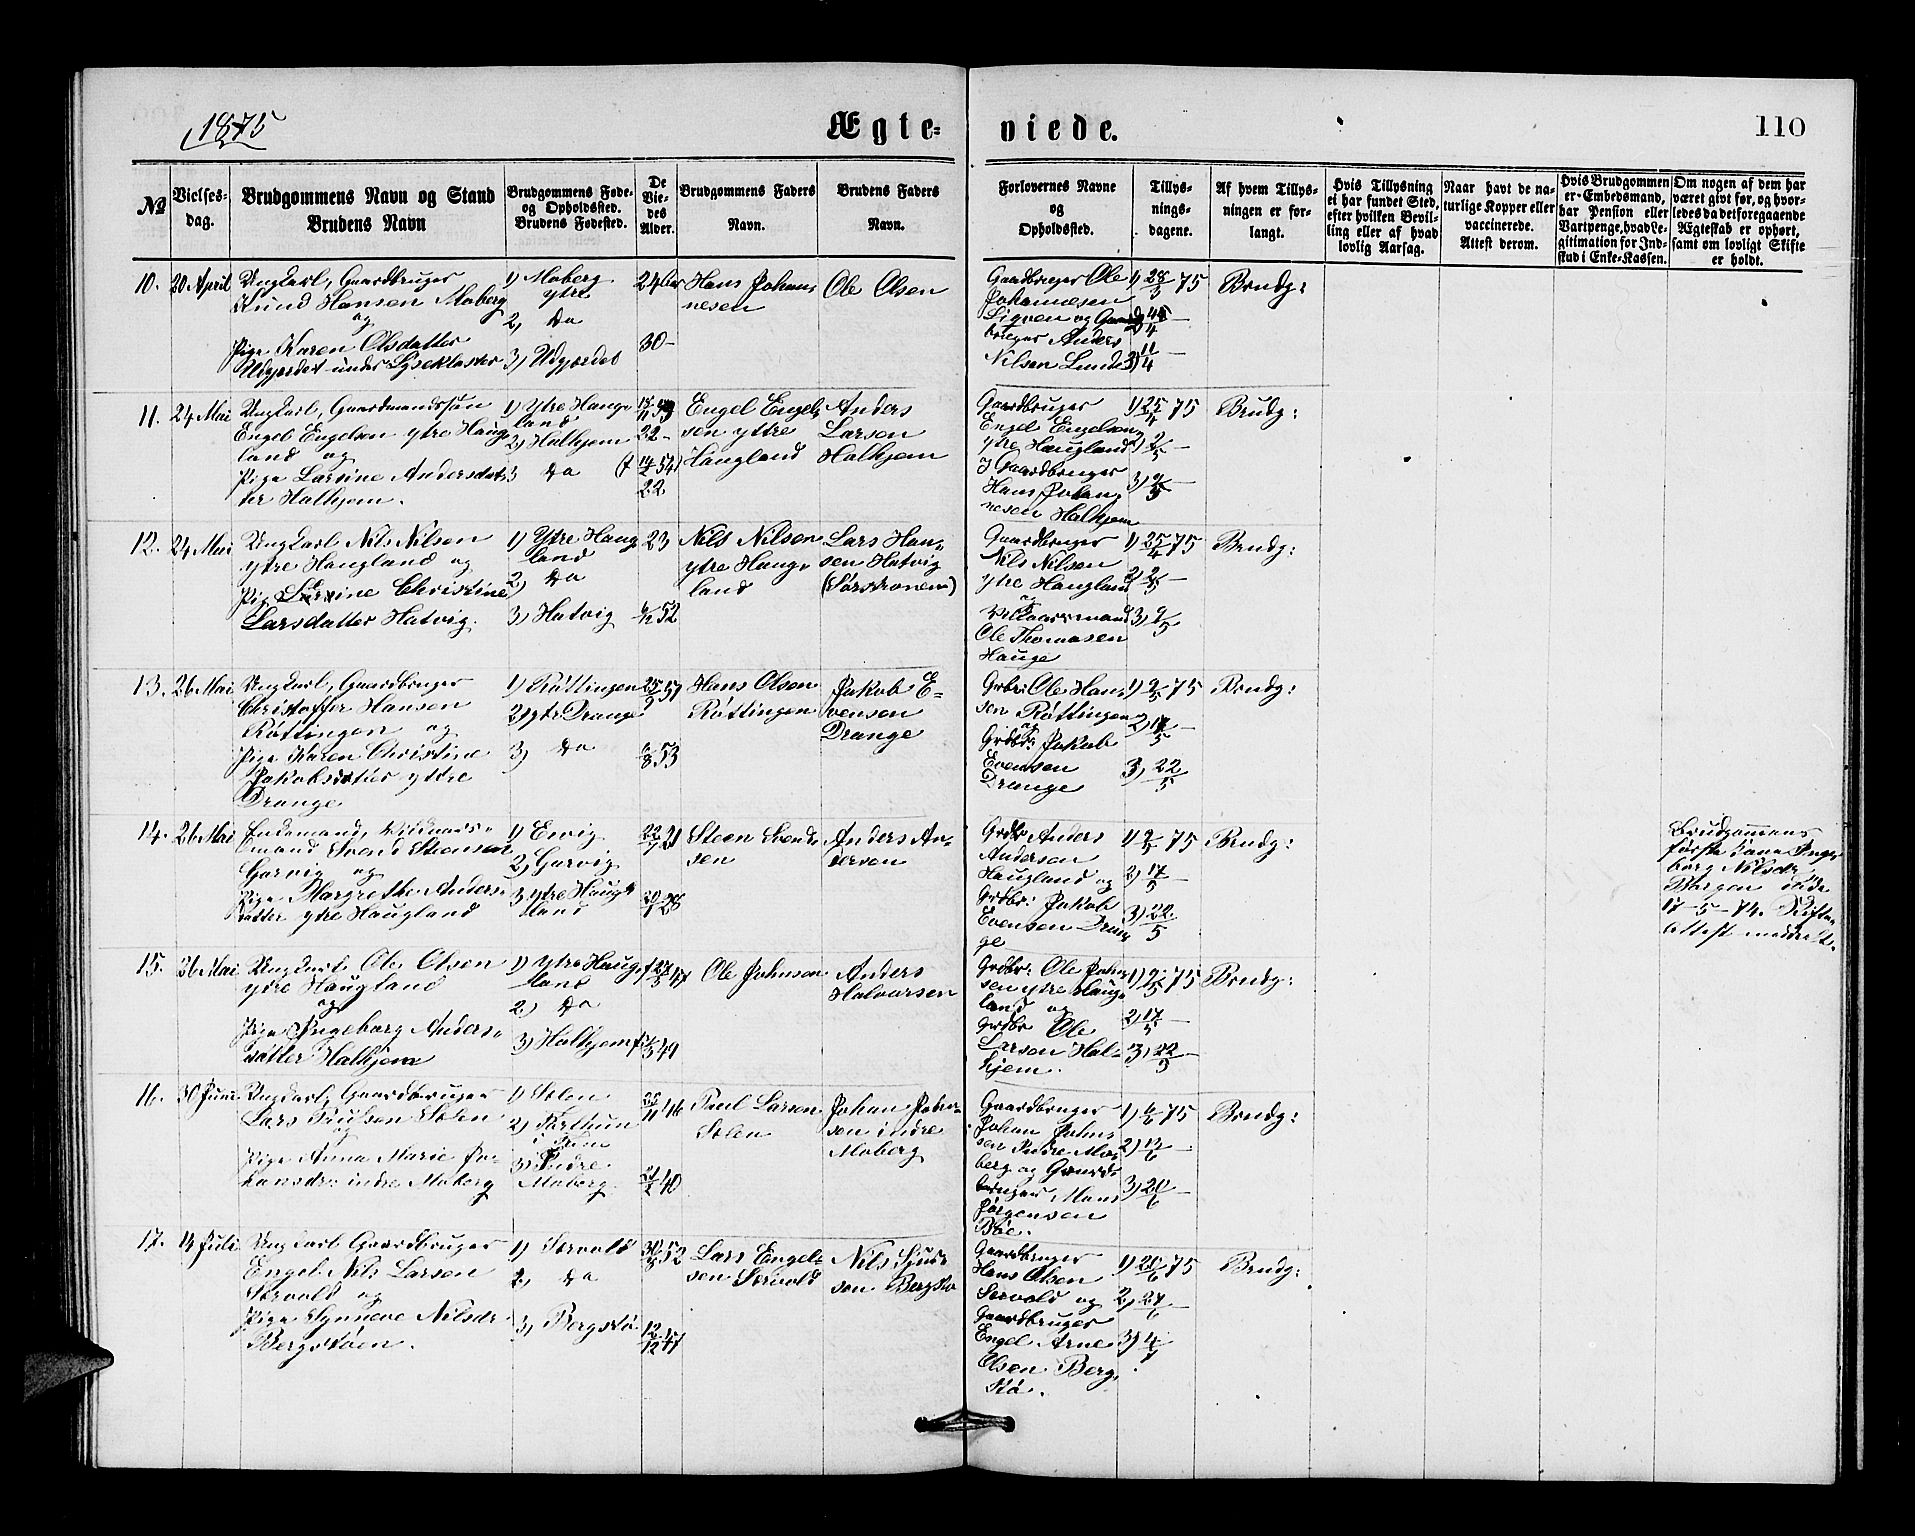 1875
Ægte-
viede.
110
No
Vielses-
dag.
Brudgommens Navn og Stand
Brudens Navn
Brudgommens Føde-
og Opholdssted.
Brudens Fødested.
De
Vie-
des
Alder.
Brudgommens Faders
Navn.
Brudens Faders
Navn.
Forlovernes Navne
og
Opholdssted.
Tillys-
nings-
dagene.
Af hvem Tillys-
ningen er for-
langt.
Hvis Tillysning
ei har fundet Sted,
efter hvilken Bevil-
ling eller af hvad
lovlig Aarsag.
Naar havt de na-
turlige Kopper eller
vaccinerede.
Attest derom.
Hvis Brudgommen
er Embedsmand,
har Pension eller
Vartpenge, hvad Le-
gitimation for Ind-
skud i Enke-Kassen.
Om nogen af dem har
været givt før, og hvor-
ledes da det foregaaende
Ægteskab er ophørt,
samt om lovligt Skifte
er holdt.
10.
20 April
Ungkarl, Gaardbruger
Knud Hansen Moberg
og
Pige Karen Olsdatter
Udgjerdet under Lysekloster
1) Moberg
ytre
2) Do
3) Udgjerdet
24
30-
Hans Johan-
nesen
Ole Olsen
Gaardbruger Ole
Johannesen
og Gaard
bruger Anders
Nilsen Lunde
1) 28/3 75
4/4 -
3) 11/4 -
Brudg:
11.
24 Mai
Ungkarl, Gaardmandssøn
Engel Engelsen ytre Haug
land og
Pige Larsine Andersdat
ter Halhjem.
1) Ytre Haug
land
2) Halhjem
3 Do
53
22-
54
22
Engel Engel
sen ytre
Haugland
Anders
Larsen
Halhjem
Gaardbruger
Engel Engelsen
ytre Haugland
Gaardbruger
Hans Johan
nesen Halhjem
1) 25/4 75
2) 2/5 -
3) 9/5 -
Brudg:
12.
24 Mai
Ungkarl Nils Nilsen
ytre Haugland og
Pige Christine
Larsdatter Hatvig.
1) Ytre Haug
land
2) Do
3) Hatvig
23
52
Nils Nilsen
ytre Haug-
land
Lars Han-
sen Hatvig
Gaardbruger
Nils Nilsen
ytre Haugland
og
Ole Thomasen
Hauge
1) 25/4 75
2) 2/5 -
3) 9/5
Brudg:
13.
26 Mai
Ungkarl, Gaardbruger
Christoffer Hansen
Røttingen og
Pige Karen Christine
Jakobsdatter ytre
Drange
1) Røttingen
2) ytr Drange
3) Do
6/8 53
Hans Olsen
Røttingen
Jakob E-
vensen
Drange
Grbr: Ole Han
sen Røttingen
og
Grdbr: Jakob
Evensen
Drange
1) 2/5 75
2) 17/5 -
3) 22/5
Brudg:
14.
26 Mai
Enkemand,
mand Svend Steensen
Garvig og
Pige Margrethe Anders-
datter ytre Haugland
1) Ervig
2) Garvig
3 ytre Haug-
land
21
28
Steen Svend
sen
Anders An-
dersen
Grdbr Anders
Andersen
Haugland og
Grdbr: Jakob
Evensen Dran
ge
1) 2/5 75
2) 17/5
3) 22/5
Brudg:
Brudgommens
første Kone Inge
borg Nilsdr
Bergen døde
17-5-74. Skifte
attest meddelt.
15.
26 Mai
Ungkarl Ole Olsen
ytre Haugland
og
Pige Ingeborg Anders-
datter Halhjem
1) Ytre Haug
land
2) Do
3) Halhjem
47
49
Ole Johnsen
Anders
Halvorsen
Grdbr: Ole John
sen ytre Haug-
land og
Grdbr Ole
Larsen Hal-
hjem.
1) 2/5 75
2) 17/5 -
3) 22/5 -
Brudg:
16.
30 Juni
Ungkarl, Gaardbruger
Lars Paulsen Solen
og
Pige Anna Marie Jo-
hansdr indre Moberg
1) Solen
2)
3) Indre
Moberg
46
40
Paul Larsen
Solen
Johan Johan-
sen indre
Moberg
Gaardbruger
Johan Johan
sen Indre Mo-
berg og Gaard-
bruger Mons
Jørgensen
Bøe.
1) 6/6 75
2) 13/6 -
3) 20/6 -
Brudg:
17.
14 Juli
Ungkarl Gaardbruger
Engel Nils Larsen
Sørvold og
Pige Synneve Nilsdr
Bergstøen.
1) Sørvold
2) Do
3) Bergstø
52
12/12 47
Lars Engel-
sen Sørvold
Nils Sjur-
sen Bergstø
Gaardbruger
Hans Olsen
Sørvold og
Gaardbruger
Engel Arne
Olsen Berg
stø.
1) 20/6 75
2) 27/6 -
3) 4/7
Brudg: